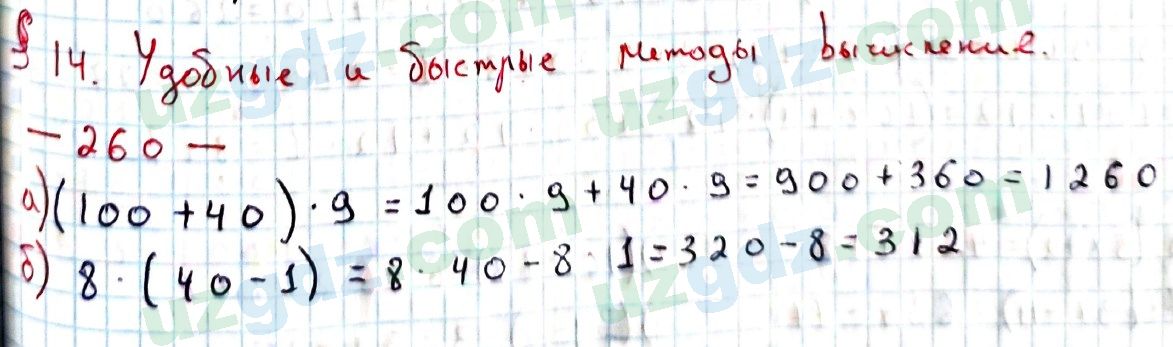 § 14. Удобные и быстрые методы вычисление.
— 260 —
а) (100 + 40) · 9 = 100 · 9 + 40 · 9 = 900 + 360 = 1260
б) 8 · (40 - 1) = 8 · 40 - 8 · 1 = 320 - 8 = 312
uzgdz.com
uzgdz.com
uzgdz.com
uzgdz.com